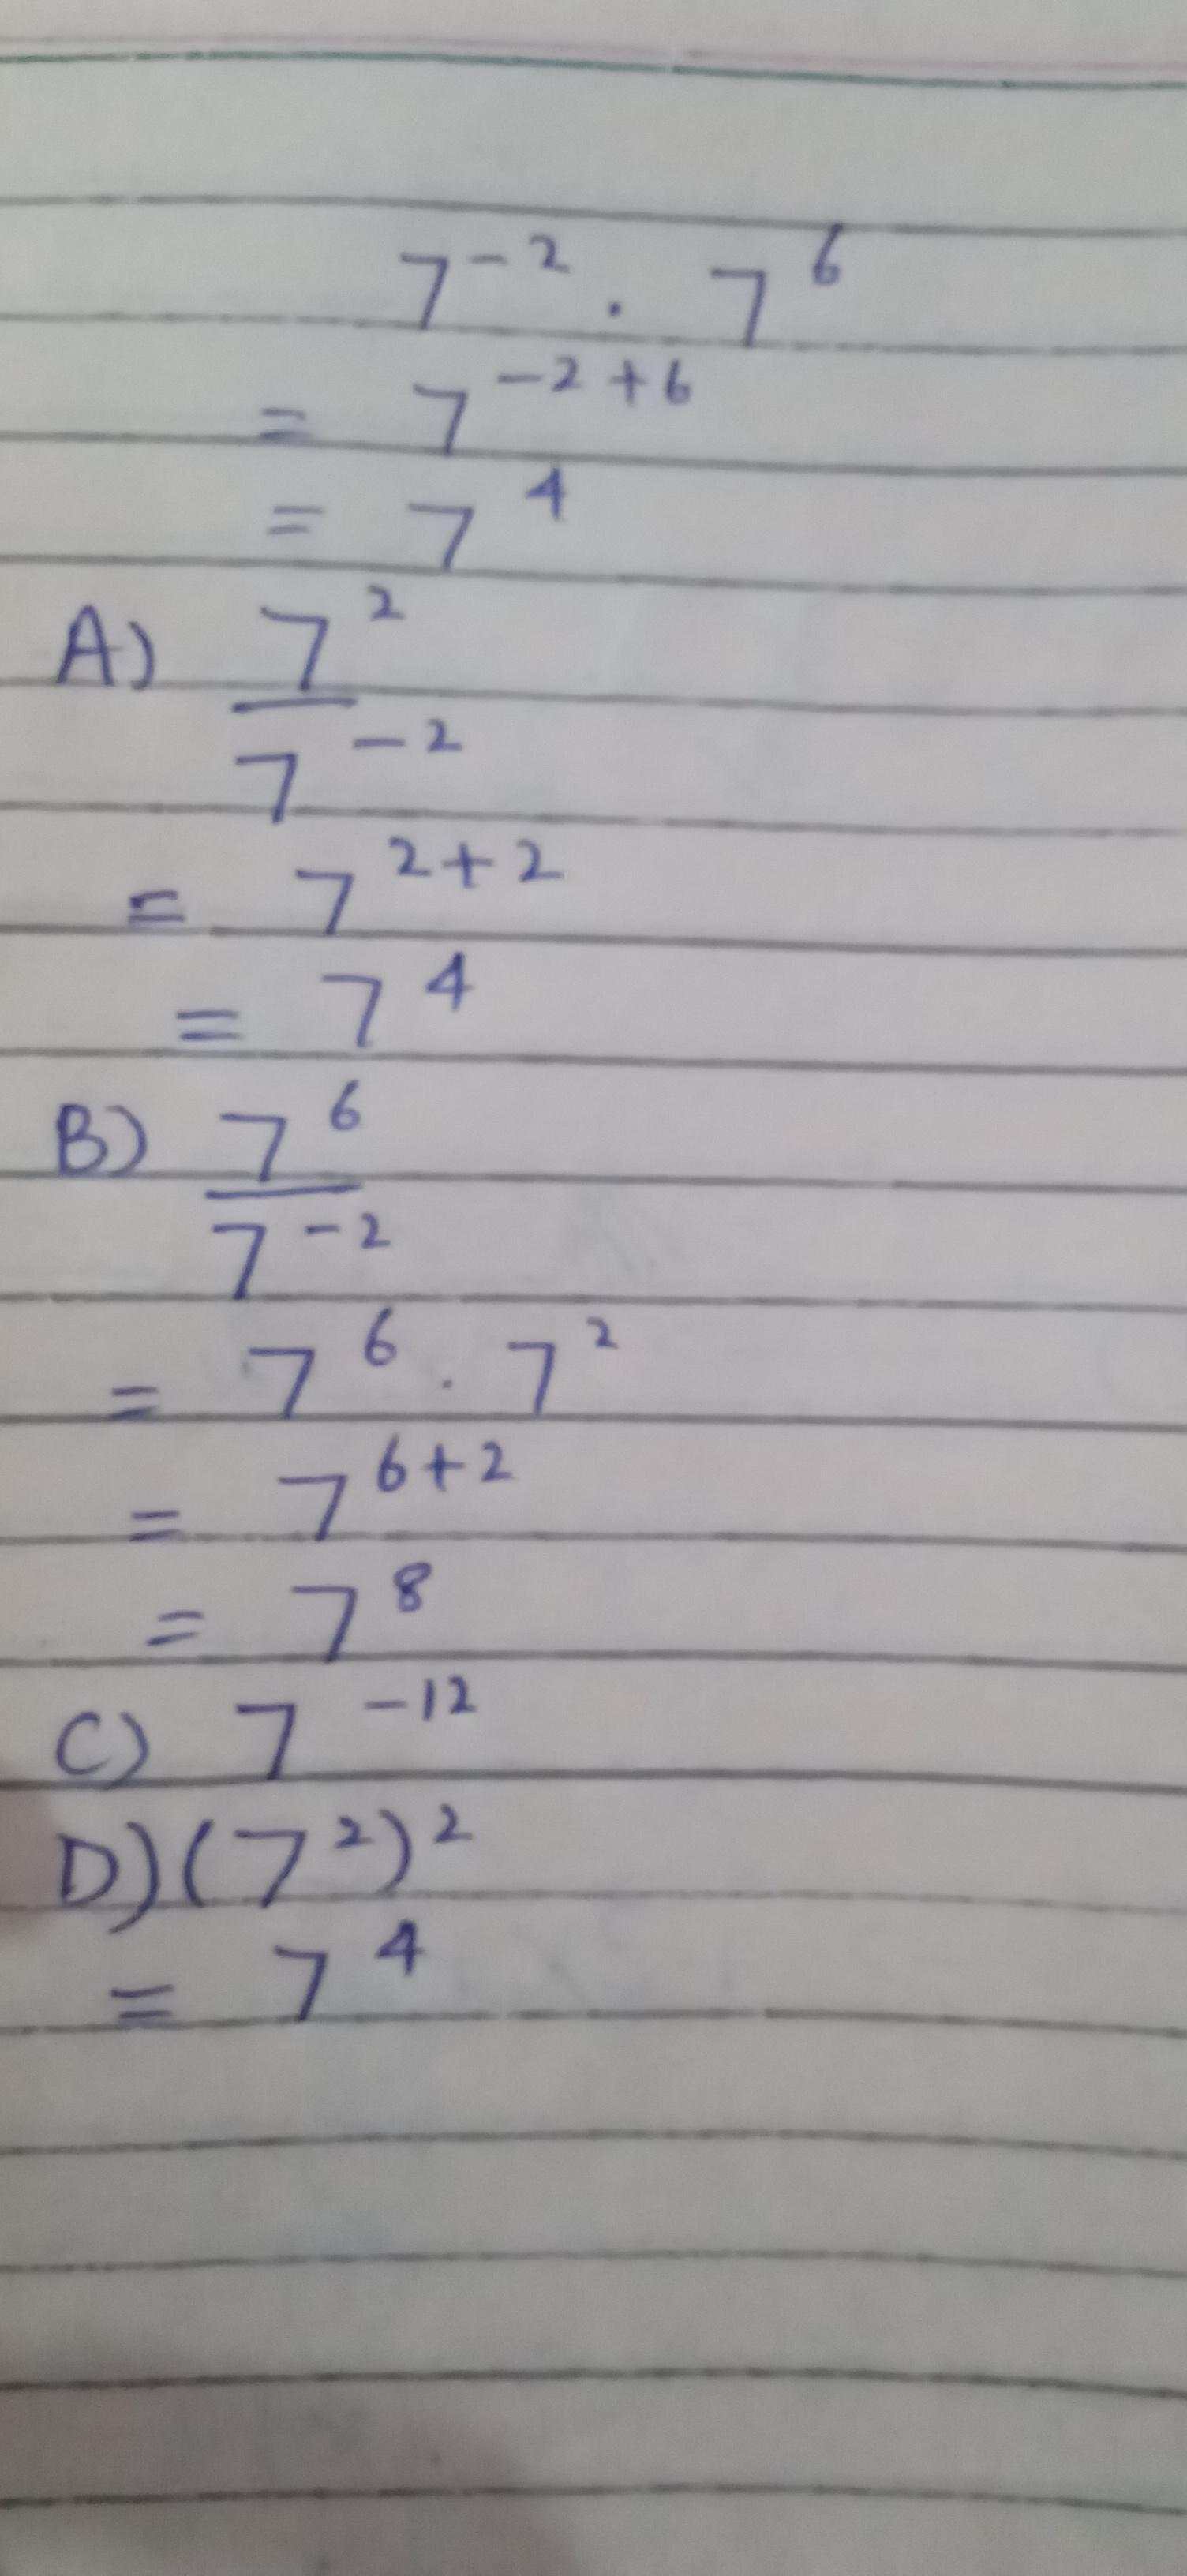 7⁻² · 7⁶
= 7⁻²⁺⁶
= 7⁴
A) 7²
7⁻²
= 7²⁺²
= 7⁴
B) 7⁶
7⁻²
= 7⁶ · 7²
= 7⁶⁺²
= 7⁸
C) 7⁻¹²
D) (7²)²
= 7⁴